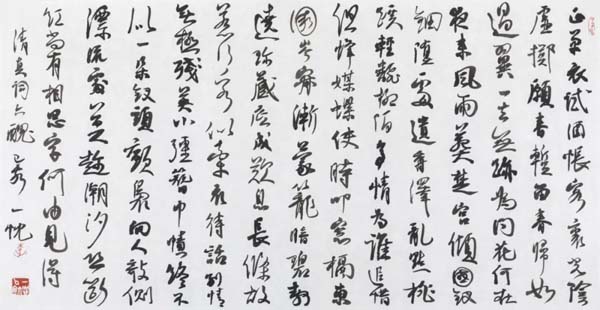 正單衣試酒悵客裏光陰
虛擲願春暫留春歸如
過翼一去無跡為問花何在
夜來風雨葬楚宮傾國釵
鈿墮處遺香澤亂點桃
蹊輕翻柳陌多情為誰追惜
但蜂媒蝶使時叩窗槅東
園岑寂漸蒙籠暗碧靜
遶珍叢底成歎息長條故
惹行客似牽衣待話別情
無極殘英小強簪巾幘終不
似一朵釵頭顫裊向人欹側
漂流處莫趁潮汐恐斷
紅尚有相思字何由見得
清真詞六醜 一忱